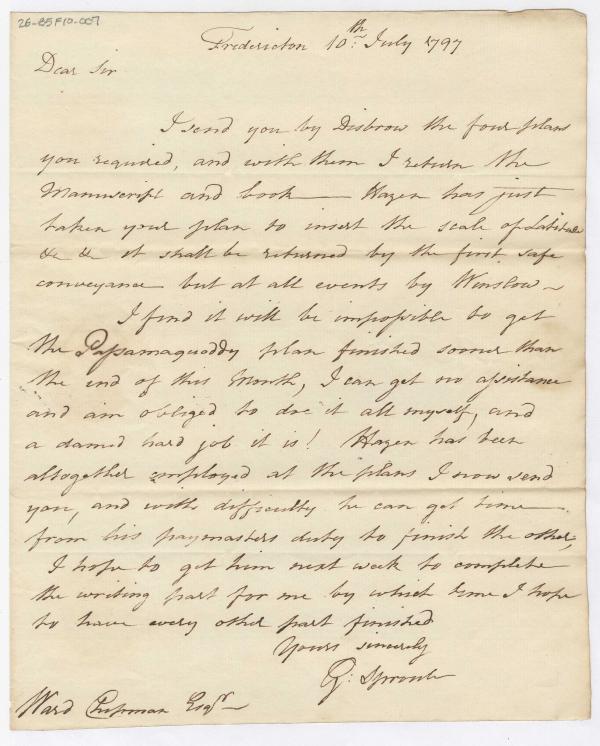 26-85F10-007
Fredericton 10th: July 1797
Dear Sir
I send you by Disbrow the four plans
you required, and with them I return the
Manuscript and book — Hazen has just
taken your plan to insert the scale of Latitude
&c &c it shall be returned by the first safe
conveyance but at all events by Winslow ~
I find it will be impossible to get
the Passamaquoddy plan finished sooner than
the end of this Month, I can get no assistance
and am obliged to doe it all myself, and
a damed hard job it is! Hazen has been
altogether employed at the plans I now send
you, and with difficulty he can get time
from his paymasters duty to finish the other,
I hope to get him next week to complete
the writing part for me by which time I hope
to have every other part finished
Yours sincerely
G: Sproule
Ward Chipman Esqr —